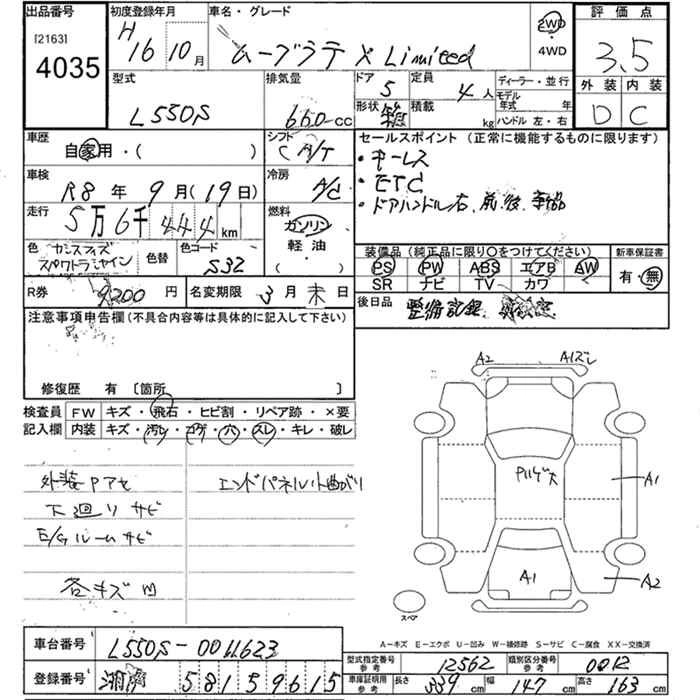 出品番号 初度登録年月 車名・グレード 評価点
[2163] H16 10月 ムーブラテ X Limited 2WD ・ 4WD 3.5
4035
型式 排気量 ドア 5 定員 4人 ディーラー・並行 外装 内装
L550S 660cc 形状 積載 kg モデル年式 年 D C
ハンドル 左・右
車歴 シフト セールスポイント(正常に機能するものに限ります)
自家用・( ) C A/T ・キーレス
車検 冷房 ・ETC
R8年 9月(19日) A/C ・ドアハンドル右、前、後
走行 燃料
5万6千444km ガソリン
軽油
( )
色 色替 色コード 装備品(純正品に限り○をつけてください) 新車保証書
S32 PS PW ABS エアB AW 有・無
SR ナビ TV カワ
R券 9200円 名変期限 3月末日 後日品 整備記録
注意事項申告欄(不具合内容等は具体的に記入して下さい)
修復歴 有 〔箇所 〕
検査員 FW キズ・飛石・ヒビ割・リペア跡・×要
記入欄 内装 キズ・汚レ・コゲ・穴・スレ・キレ・破レ
外装Pアセ エンドパネル小曲がり
下廻りサビ
E/Gルームサビ
各キズ凹
A2 A1ズレ
P11ゲ大 A1
A1 A2
スペア
A−キズ E−エクボ U−凹み W−補修跡 S−サビ C−腐食 XX−交換済
車台番号 L550S-0011623 型式指定番号 参考 12562 類別区分番号 参考
登録番号 581 59615 車庫証明用 参考 長さ 339cm 幅 147cm 高さ 163cm